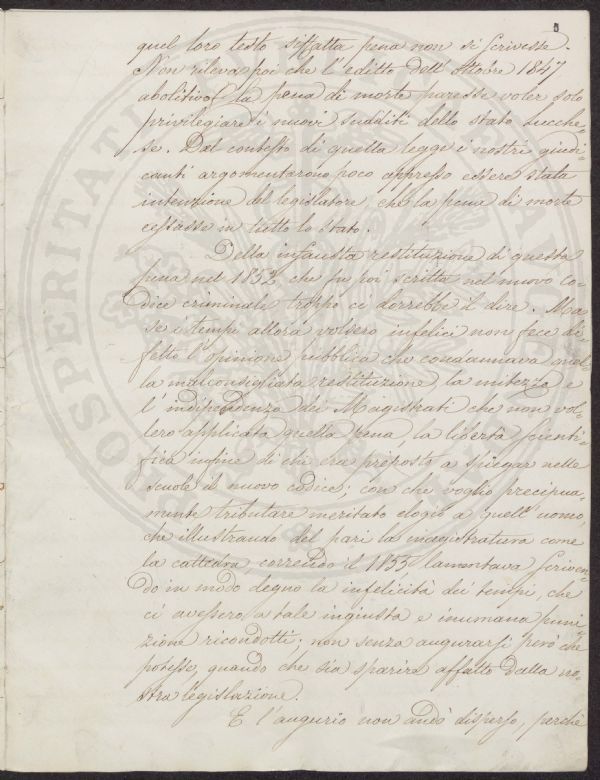 5
quel loro testo siffatta pena non si scrivesse.
Non rileva poi che l'editto dell'ottobre 1847
abolitivo della pena di morte paresse voler solo
privilegiare i nuovi sudditi dello stato lucche=
se. Dal contesto di quella legge i nostri giudi=
canti argomentarono poco appresso essere stata
intenzione del legislatore, che la pena di morte
cessasse in tutto lo stato.
Della infausta restituzione di questa
pena nel 1852, che fu poi scritta nel nuovo co=
dice criminale troppo ci dorrebbe il dire. Ma
se i tempi allora volsero infelici non fece di=
fetto l'opinione pubblica che condannava quel=
la malconsigliata restituzione, la mitezza e
l'indipendenza dei Magistrati che non vol=
lero applicata quella pena, la libertà scienti=
fica infine di chi era preposto a spiegar nelle
scuole il nuovo codice; con che voglio precipua=
mente tributare meritato elogio a quell'uomo,
che illustrando del pari la magistratura come
la cattedra correndo il 1855 lamentava scriven=
do in modo degno la infelicità dei tempi, che
ci avessero a tale ingiusta e inumana puni=
zione ricondotti; non senza augurarsi però che
potesse, quando che sia sparire affatto dalla no=
stra legislazione.
E l'augurio non andò disperso, perchè
PROSPERITATI